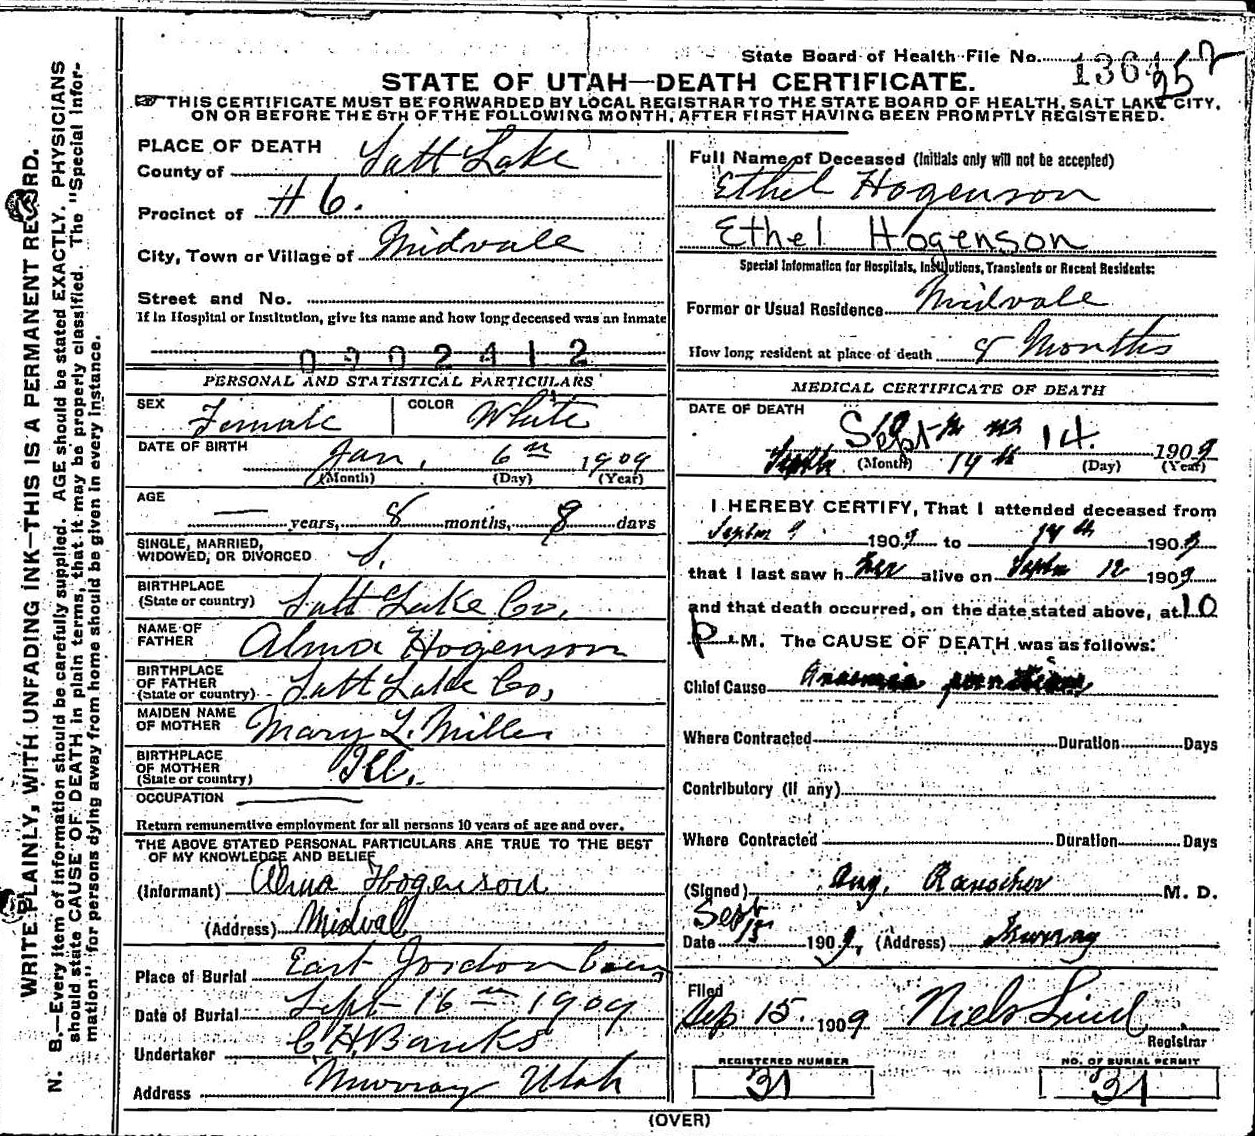 State Board of Health File No. 1364 252
STATE OF UTAH—DEATH CERTIFICATE.
THIS CERTIFICATE MUST BE FORWARDED BY LOCAL REGISTRAR TO THE STATE BOARD OF HEALTH, SALT LAKE CITY,
ON OR BEFORE THE 5TH OF THE FOLLOWING MONTH, AFTER FIRST HAVING BEEN PROMPTLY REGISTERED.
WRITE PLAINLY, WITH UNFADING INK—THIS IS A PERMANENT RECORD.
N. B.—Every item of information should be carefully supplied. AGE should be stated EXACTLY. PHYSICIANS
should state CAUSE OF DEATH in plain terms, that it may be properly classified. The "Special Infor-
mation" for persons dying away from home should be given in every instance.
PLACE OF DEATH
County of Salt Lake
Precinct of #6.
City, Town or Village of Midvale
Street and No.
If in Hospital or Institution, give its name and how long deceased was an inmate
0902412
PERSONAL AND STATISTICAL PARTICULARS
SEX Female COLOR White
DATE OF BIRTH Jan, 6th 1909
(Month) (Day) (Year)
AGE
— years, 8 months, 8 days
SINGLE, MARRIED,
WIDOWED, OR DIVORCED S.
BIRTHPLACE
(State or country) Salt Lake Co,
NAME OF
FATHER Alma Hogenson
BIRTHPLACE
OF FATHER
(State or country) Salt Lake Co,
MAIDEN NAME
OF MOTHER Mary L. Miller
BIRTHPLACE
OF MOTHER
(State or country) Ill.
OCCUPATION —
Return remunerative employment for all persons 10 years of age and over.
THE ABOVE STATED PERSONAL PARTICULARS ARE TRUE TO THE BEST
OF MY KNOWLEDGE AND BELIEF
(Informant) Alma Hogenson
(Address) Midval
Place of Burial East Jordon Cem
Date of Burial Sept 16th 1909
Undertaker C H Banks
Address Murray Utah
Full Name of Deceased (Initials only will not be accepted)
Ethel Hogenson
Ethel Hogenson
Special Information for Hospitals, Institutions, Transients or Recent Residents:
Former or Usual Residence Midvale
How long resident at place of death 8 Months
MEDICAL CERTIFICATE OF DEATH
DATE OF DEATH
Sept 14. 1909
Septb 14th
(Month) (Day) (Year)
I HEREBY CERTIFY, That I attended deceased from
Septbr 9 1909 to 14th 1909
that I last saw her alive on Septbr 12 1909
and that death occurred, on the date stated above, at 10
p. M. The CAUSE OF DEATH was as follows:
Chief Cause Anaemia
Where Contracted Duration Days
Contributory (if any)
Where Contracted Duration Days
(Signed) Aug. Rauscher M. D.
Sept
Date 15 1909, (Address) Murray
Filed
Sep 15. 1909 Niels Lind
Registrar
REGISTERED NUMBER
31
NO. OF BURIAL PERMIT
31
(OVER)